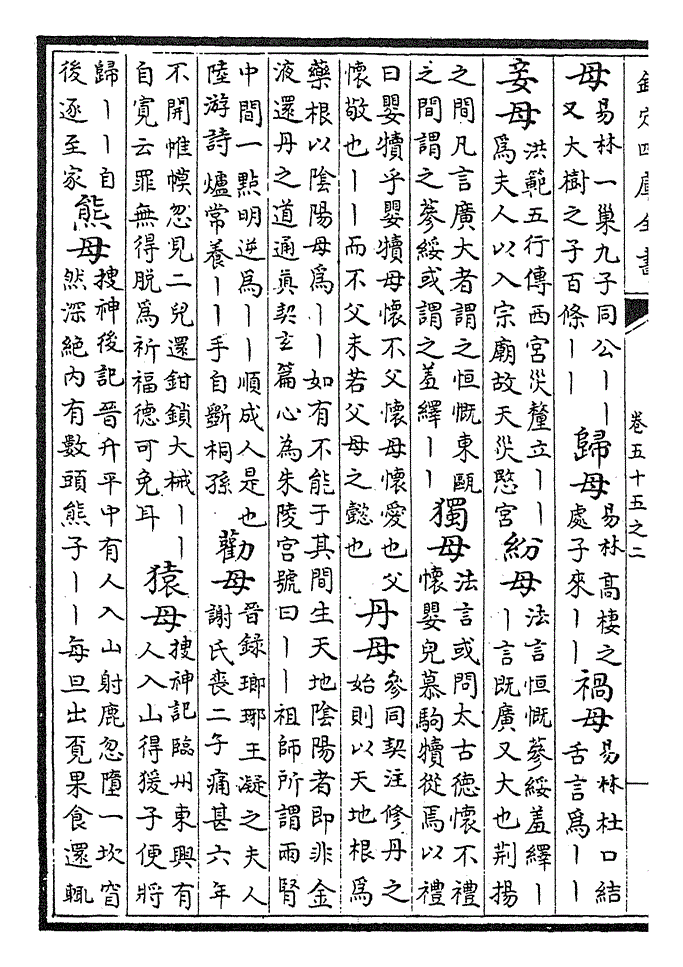 欽定四庫全書
卷五十五之二
一
母
易林一巢九子同公丨丨
又大樹之子百條丨丨
歸母
易林高棲之
處子來丨丨
禍母
易林杜口結
舌言爲丨丨
妾母
洪範五行傳西宮災釐立丨丨
爲夫人以入宗廟故天災愍宮
紛母
法言恒慨蔘綏羞繹丨
丨言既廣又大也荊揚
之間凡言廣大者謂之恒慨東甌
之間謂之蔘綏或謂之羞繹丨丨
獨母
法言或問太古德懷不禮
懷嬰兒慕駒犢從焉以禮
曰嬰犢乎嬰犢母懷不父懷母懷愛也父
懷敬也丨丨而不父未若父母之懿也
丹母
參同契注修丹之
始則以天地根爲
藥根以陰陽母爲丨丨如有不能于其間生天地陰陽者即非金
液還丹之道通眞契玄篇心為朱陵宮號曰丨丨祖師所謂兩腎
中間一點明逆爲丨丨順成人是也
陸游詩爐常養丨丨手自斲桐孫
勸母
晉錄瑯琊王凝之夫人
謝氏喪二子痛甚六年
不開帷幙忽見二兒還鉗鎖大械丨丨
自寛云罪無得脫爲祈福德可免耳
猿母
搜神記臨州東興有
人入山得猨子便將
歸丨丨自
後逐至家
熊母
搜神後記晉升平中有人入山射鹿忽墮一坎窅
然深絕內有數頭熊子丨丨每旦出覓果食還輒